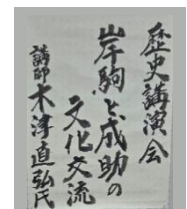 歴史講演会
岸駒と成助の
文化交流
講師 木津直弘氏